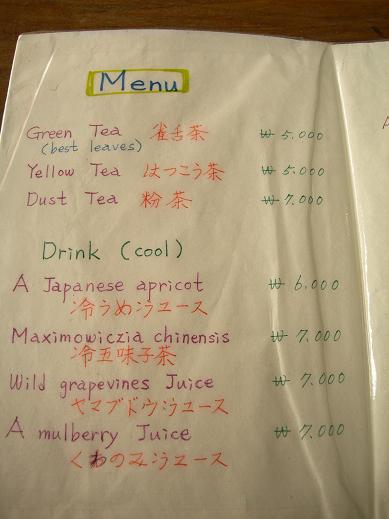 Menu
Green Tea 雀舌茶 ₩ 5,000
(best leaves)
Yellow Tea はつこう茶 ₩ 5,000
Dust Tea 粉茶 ₩ 7,000
Drink (cool)
A Japanese apricot ₩ 6,000
冷うめジュース
Maximowiczia chinensis ₩ 7,000
冷五味子茶
Wild grapevines Juice ₩ 7,000
ヤマブドウジュース
A mulberry Juice ₩ 7,000
くわのみジュース